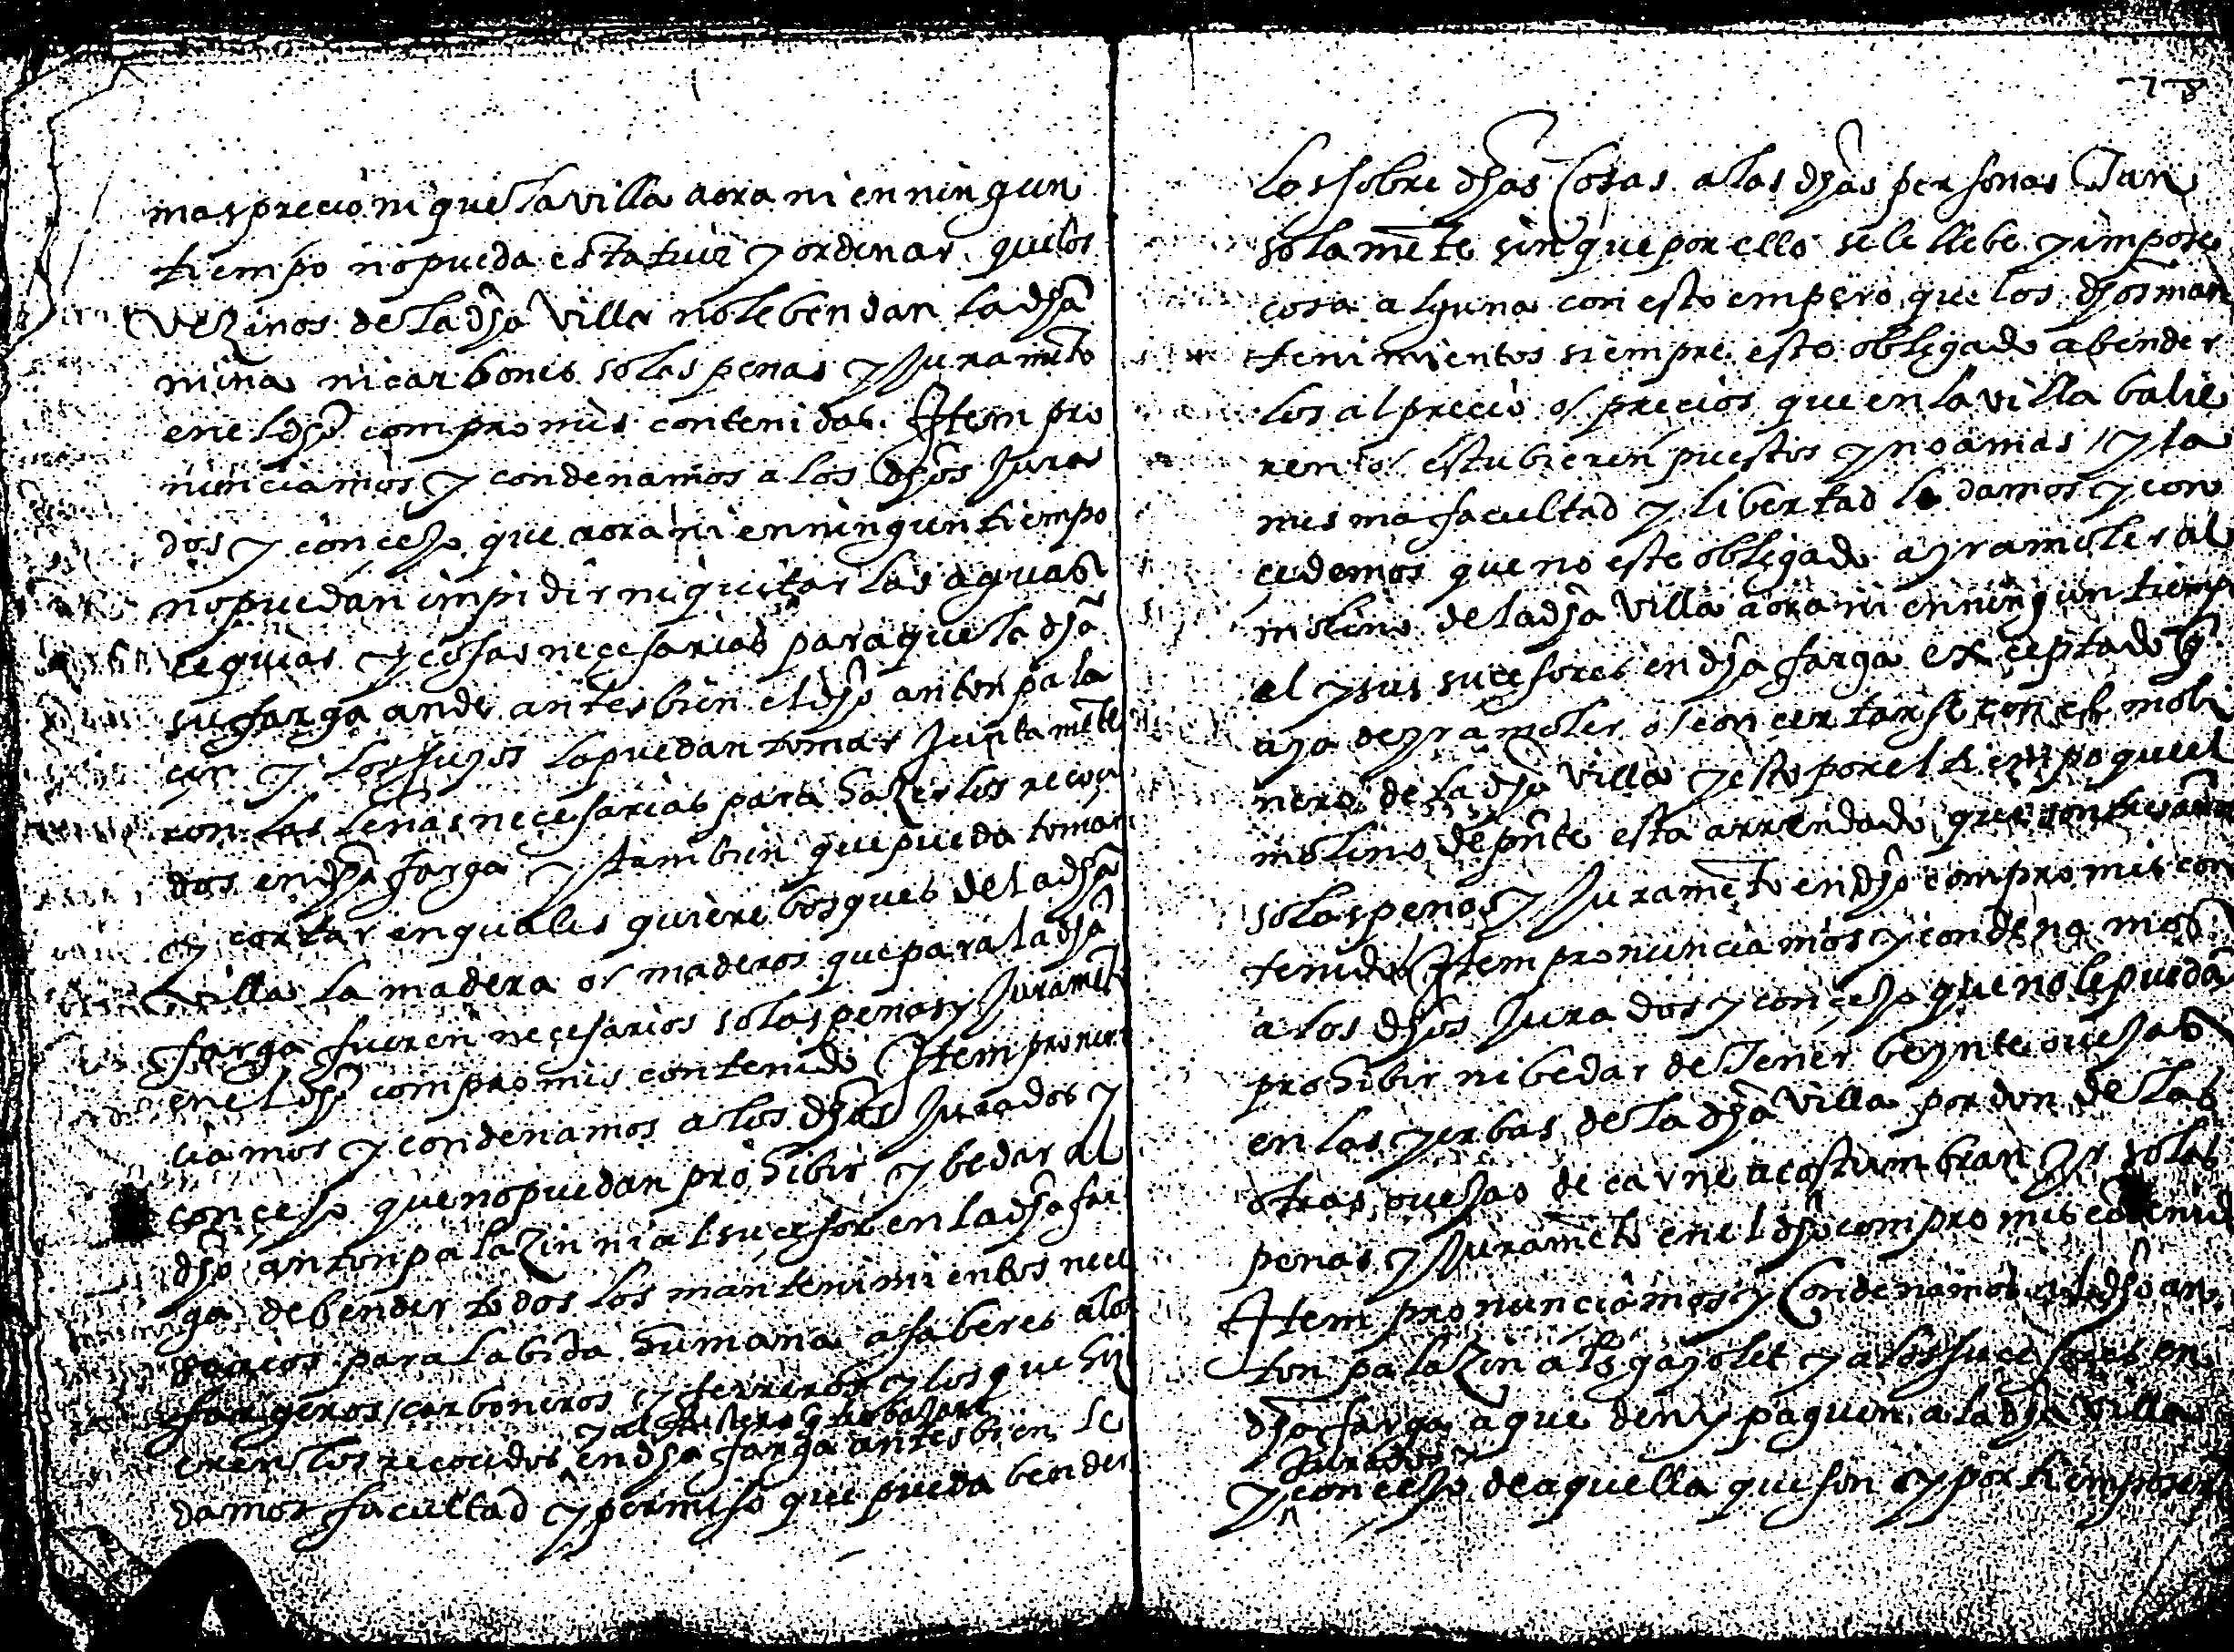 mas precio ni que la villa aora ni en ningun
tiempo no pueda estatuir y ordenar que los
vezinos de la dha villa no le bendan la dha
mina ni carbones so las penas y juramto
en el dho compromis contenidas. Item pro
nunciamos y condenamos a los dhos jura
dos y conçejo que aora ni en ningun tiempo
no puedan impidir ni quitar las aguas
cequias y cosas neçesarias para que la dha
su farga ande antes bien el dho anton pala
çin y los suyos la puedan tomar juntamēte
con las leñas neçesarias para hazer los recoçi
dos en dha farga y tambien que pueda tomar
y cortar en quales quiere bosques de la dha
villa la madera o/ maderos que para la dha
farga fueren neçesarios so las penas y juramēto
en el dho compromis contenido Item pronun
ciamos y condenamos a los dhos jurados y
conçejo que no puedan prohibir y bedar al
dho anton palazin ni al suçesor en la dha far
ga de bender todos los mantenimientos neçe
sarios para la bida humana a saber es a los
fargeros / carboneros y ferreros y los que hizi
y al
eren los recocidos en dha farga antes bien le
damos facultad y permiso que pueda bender
78
las sobre dhas cosas a las dhas personas tan
solamēte sin que por ello se le llebe y impose
cosa alguna con esto empero que los dhos man
tenimientos siempre este obligado a bender
los al preçio o/ precios que en la villa balie
ren o/ estubieren puestos y no a mas / y la
misma facultad y libertad le damos y con
çedemos que no este obligado a yr a moler al
molino de la dha villa aora ni en ningun tiempo
el y sus suçesores en dha farga exçeptado q
aya de yr a moler o/ conçertarse con el moli
nero de la dha villa y esto por el tiempo que el
molino de pnte esta arrendado que
so las penas y juramēto en dho compromis con
tenidos Item pronunciamos y condenamos
a los dhos jurados y conçejo que no le puedā
prohibir ni bedar de tener beynte ouejas
en las yerbas de la dha villa por don de las
otras ouejas de carne acostumbran yr so las
penas y juramēto en el dho compromis cōtenid
Item pronunciamos y condenamos al dho an
ton palazin als gayolet y a los suçesores en
dha farga a que den y paguen a la dha villa
Jurados y
y conçejo de aquella que son y por tiempo seran